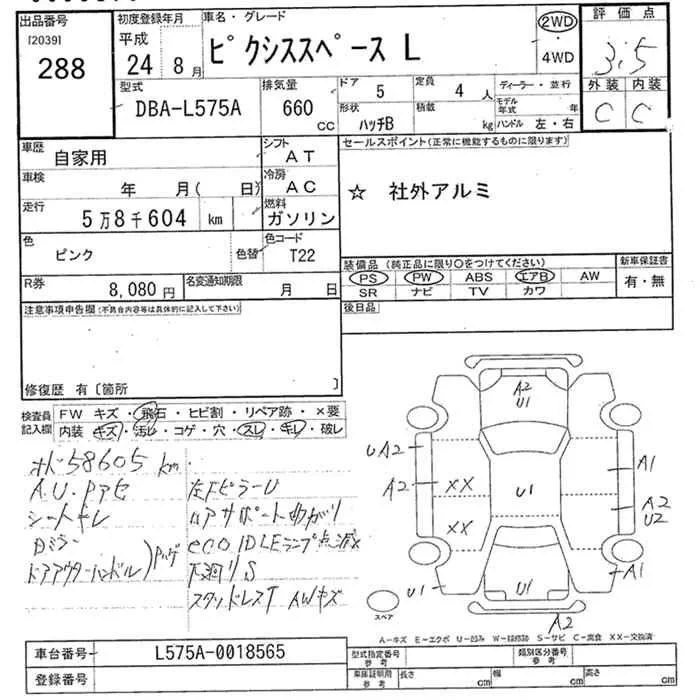 出品番号 初度登録年月 車名・グレード 2WD 評価点
[2039] 平成 ピクシススペース L 4WD 3.5
288 24年 8月 外装 内装
型式 排気量 ドア 定員 ディーラー・並行 C C
DBA-L575A 660 CC 5 4人 モデル年式 年
形状 積載
ハッチB kg ハンドル 左・右
車歴 シフト セールスポイント(正常に機能するものに限ります)
自家用 AT
車検 年 月( 日) 冷房 AC ☆ 社外アルミ
走行 燃料
5万8千604 km ガソリン
色 色替 色コード
ピンク T22
装備品(純正品に限り○をつけてください) 新車保証書
PS PW ABS エアB AW 有・無
SR ナビ TV カワ
R券 8,080円 名変通知期限 月 日
後日品
注意事項申告欄(不具合内容等は具体的に記入して下さい)
修復歴 有〔箇所 〕
検査員記入欄 FW キズ・飛石・ヒビ割・リペア跡・×要
内装 キズ・汚レ・コゲ・穴・スレ・キレ・破レ
58605 km
シートキレ
ドアアウターハンドル
左FピラーU
eco IDLEランプ点滅
AWキズ
A2
U1
UA2
A2
XX
XX
U1
A1
A2
U2
U1
U1
A1
A2
スペア
A−キズ E−エクボ U−凹み W−補修跡 S−サビ C−腐食 XX−交換済
車台番号 L575A-0018565 型式指定番号 参考 類別区分番号 参考
登録番号 車庫証明用 参考 長さ cm 幅 cm 高さ cm